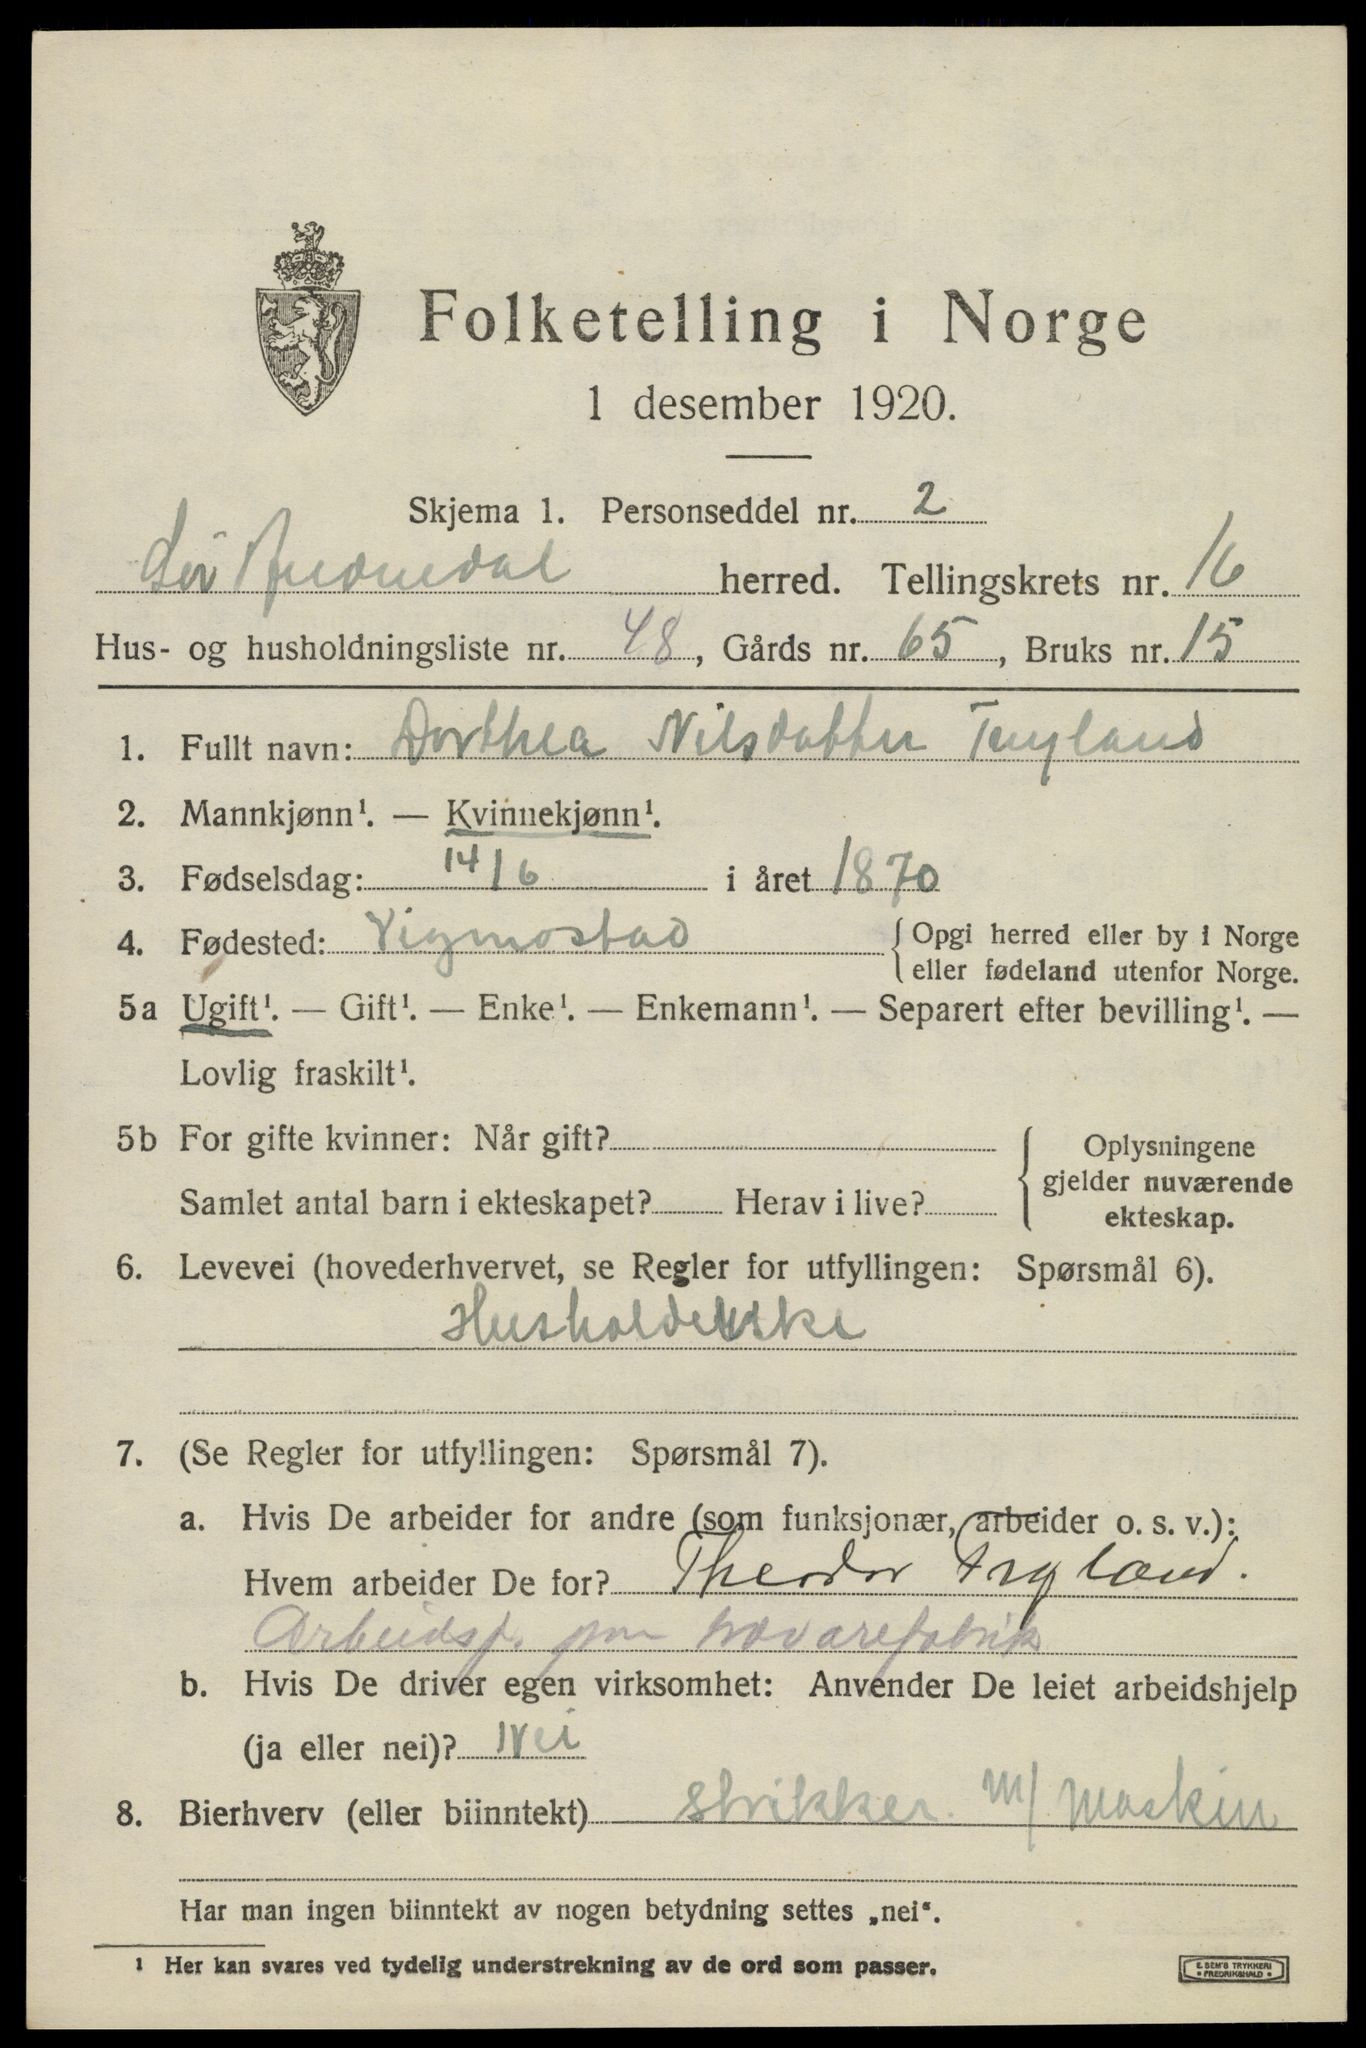 Folketelling i Norge
1 desember 1920.
Skjema 1. Personseddel nr. 2
Sør Audnedal herred. Tellingskrets nr. 16
Hus- og husholdningsliste nr. 48, Gårds nr. 65, Bruks nr. 15
1. Fullt navn: Dorthea Nilsdatter Tryland
2. Mannkjønn¹. — Kvinnekjønn¹.
3. Fødselsdag: 14/6 i året 1870
4. Fødested: Vigmostad { Opgi herred eller by i Norge
eller fødeland utenfor Norge.
5a Ugift¹. — Gift¹. — Enke¹. — Enkemann¹. — Separert efter bevilling¹. —
Lovlig fraskilt¹.
5b For gifte kvinner: Når gift?
Samlet antal barn i ekteskapet? Herav i live?
{ Oplysningene
gjelder nuværende
ekteskap.
6. Levevei (hovederhvervet, se Regler for utfyllingen: Spørsmål 6).
Husholderske
7. (Se Regler for utfyllingen: Spørsmål 7).
a. Hvis De arbeider for andre (som funksjonær, arbeider o. s. v.):
Hvem arbeider De for? Theodor Tryland.
Arbeidsf. paa trævarefabrik
b. Hvis De driver egen virksomhet: Anvender De leiet arbeidshjelp
(ja eller nei)? Nei
8. Bierhverv (eller biinntekt) strikker m/ maskin
Har man ingen biinntekt av nogen betydning settes „nei“.
¹ Her kan svares ved tydelig understrekning av de ord som passer.
E. SEM'S TRYKKERI
• FREDRIKSHALD •